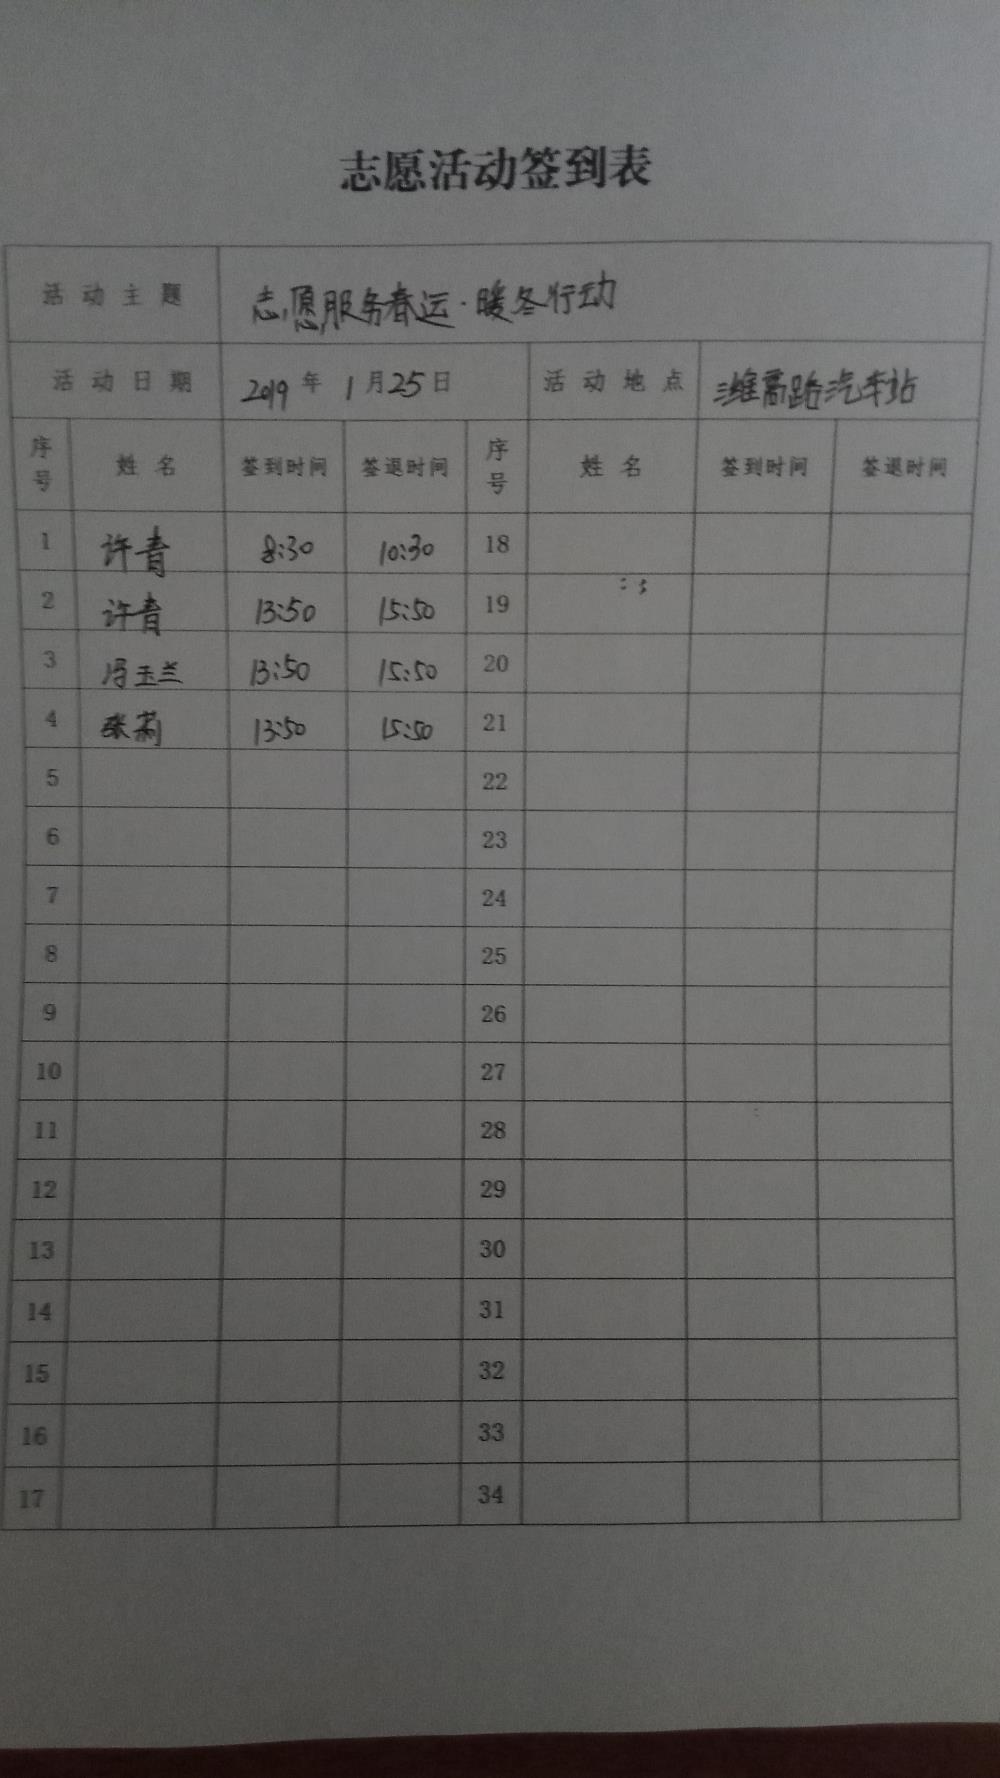 志愿活动签到表
活动主题 志愿服务春运·暖冬行动
活动日期 2019年1月25日 活动地点 潍高路汽车站
序号 姓名 签到时间 签退时间 序号 姓名 签到时间 签退时间
1 许青 8:30 10:30 18
2 许青 13:50 15:50 19
3 冯玉兰 13:50 15:50 20
4 张莉 13:50 15:50 21
5 22
6 23
7 24
8 25
9 26
10 27
11 28
12 29
13 30
14 31
15 32
16 33
17 34